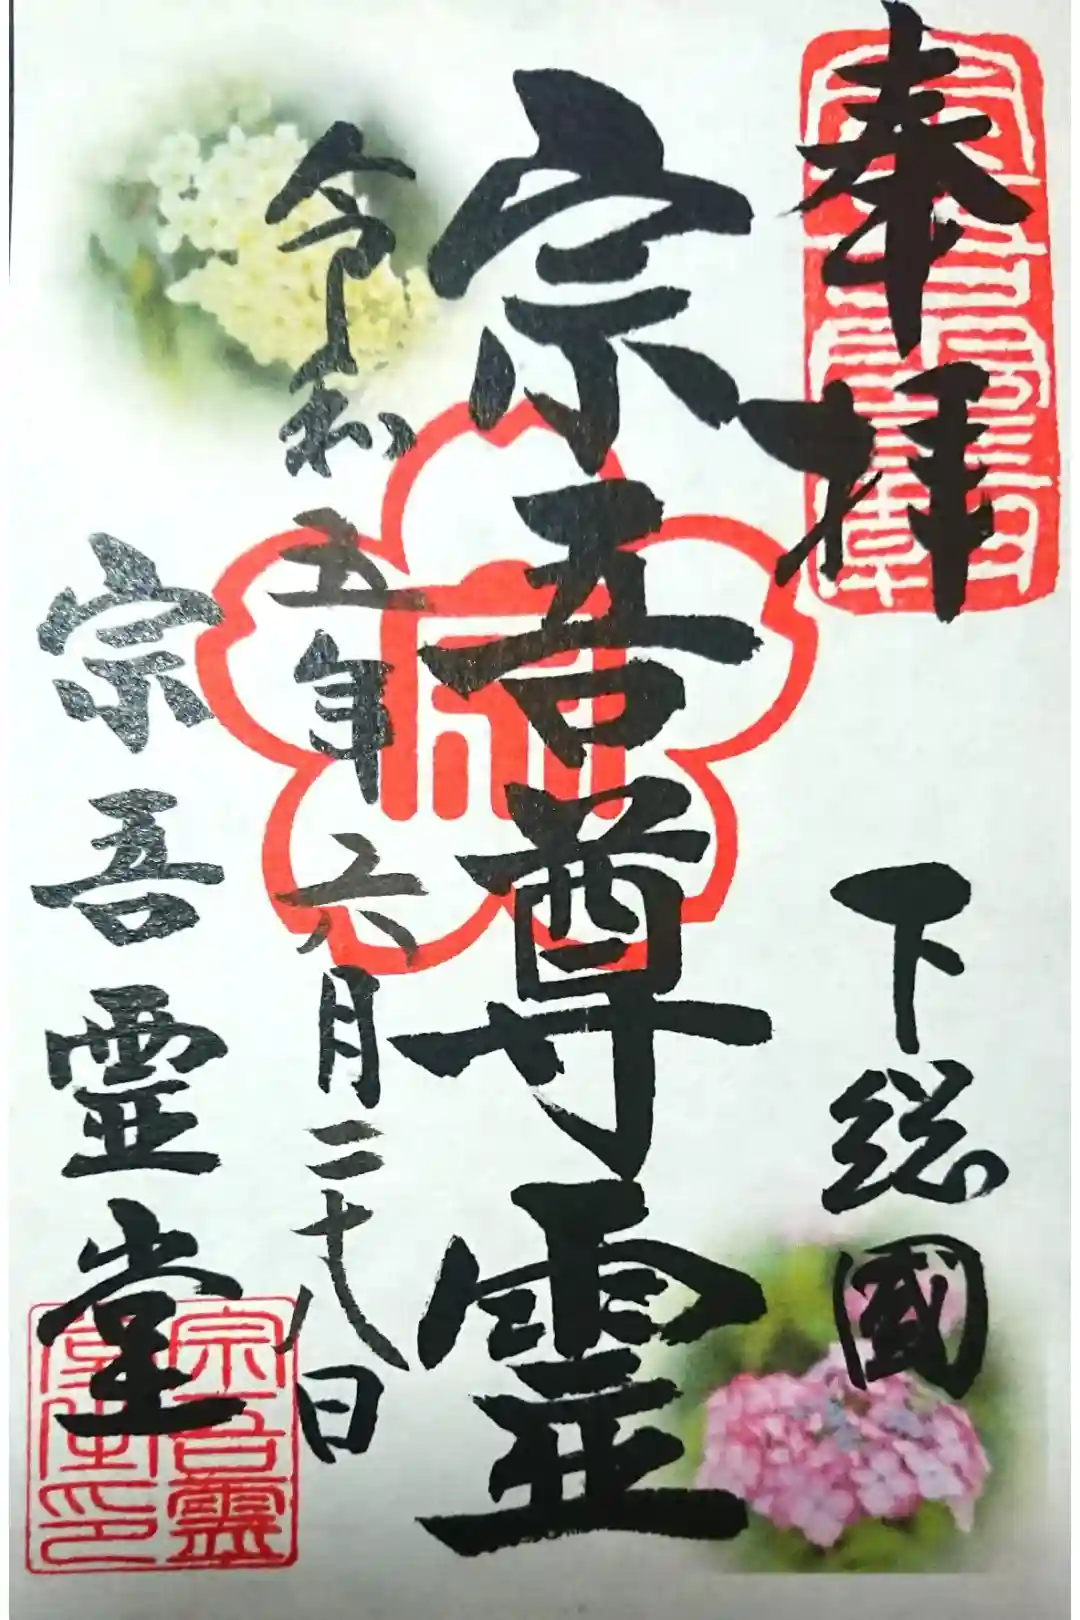 奉拝
下総國
宗吾尊霊
令和五年六月二十八日
宗吾霊堂